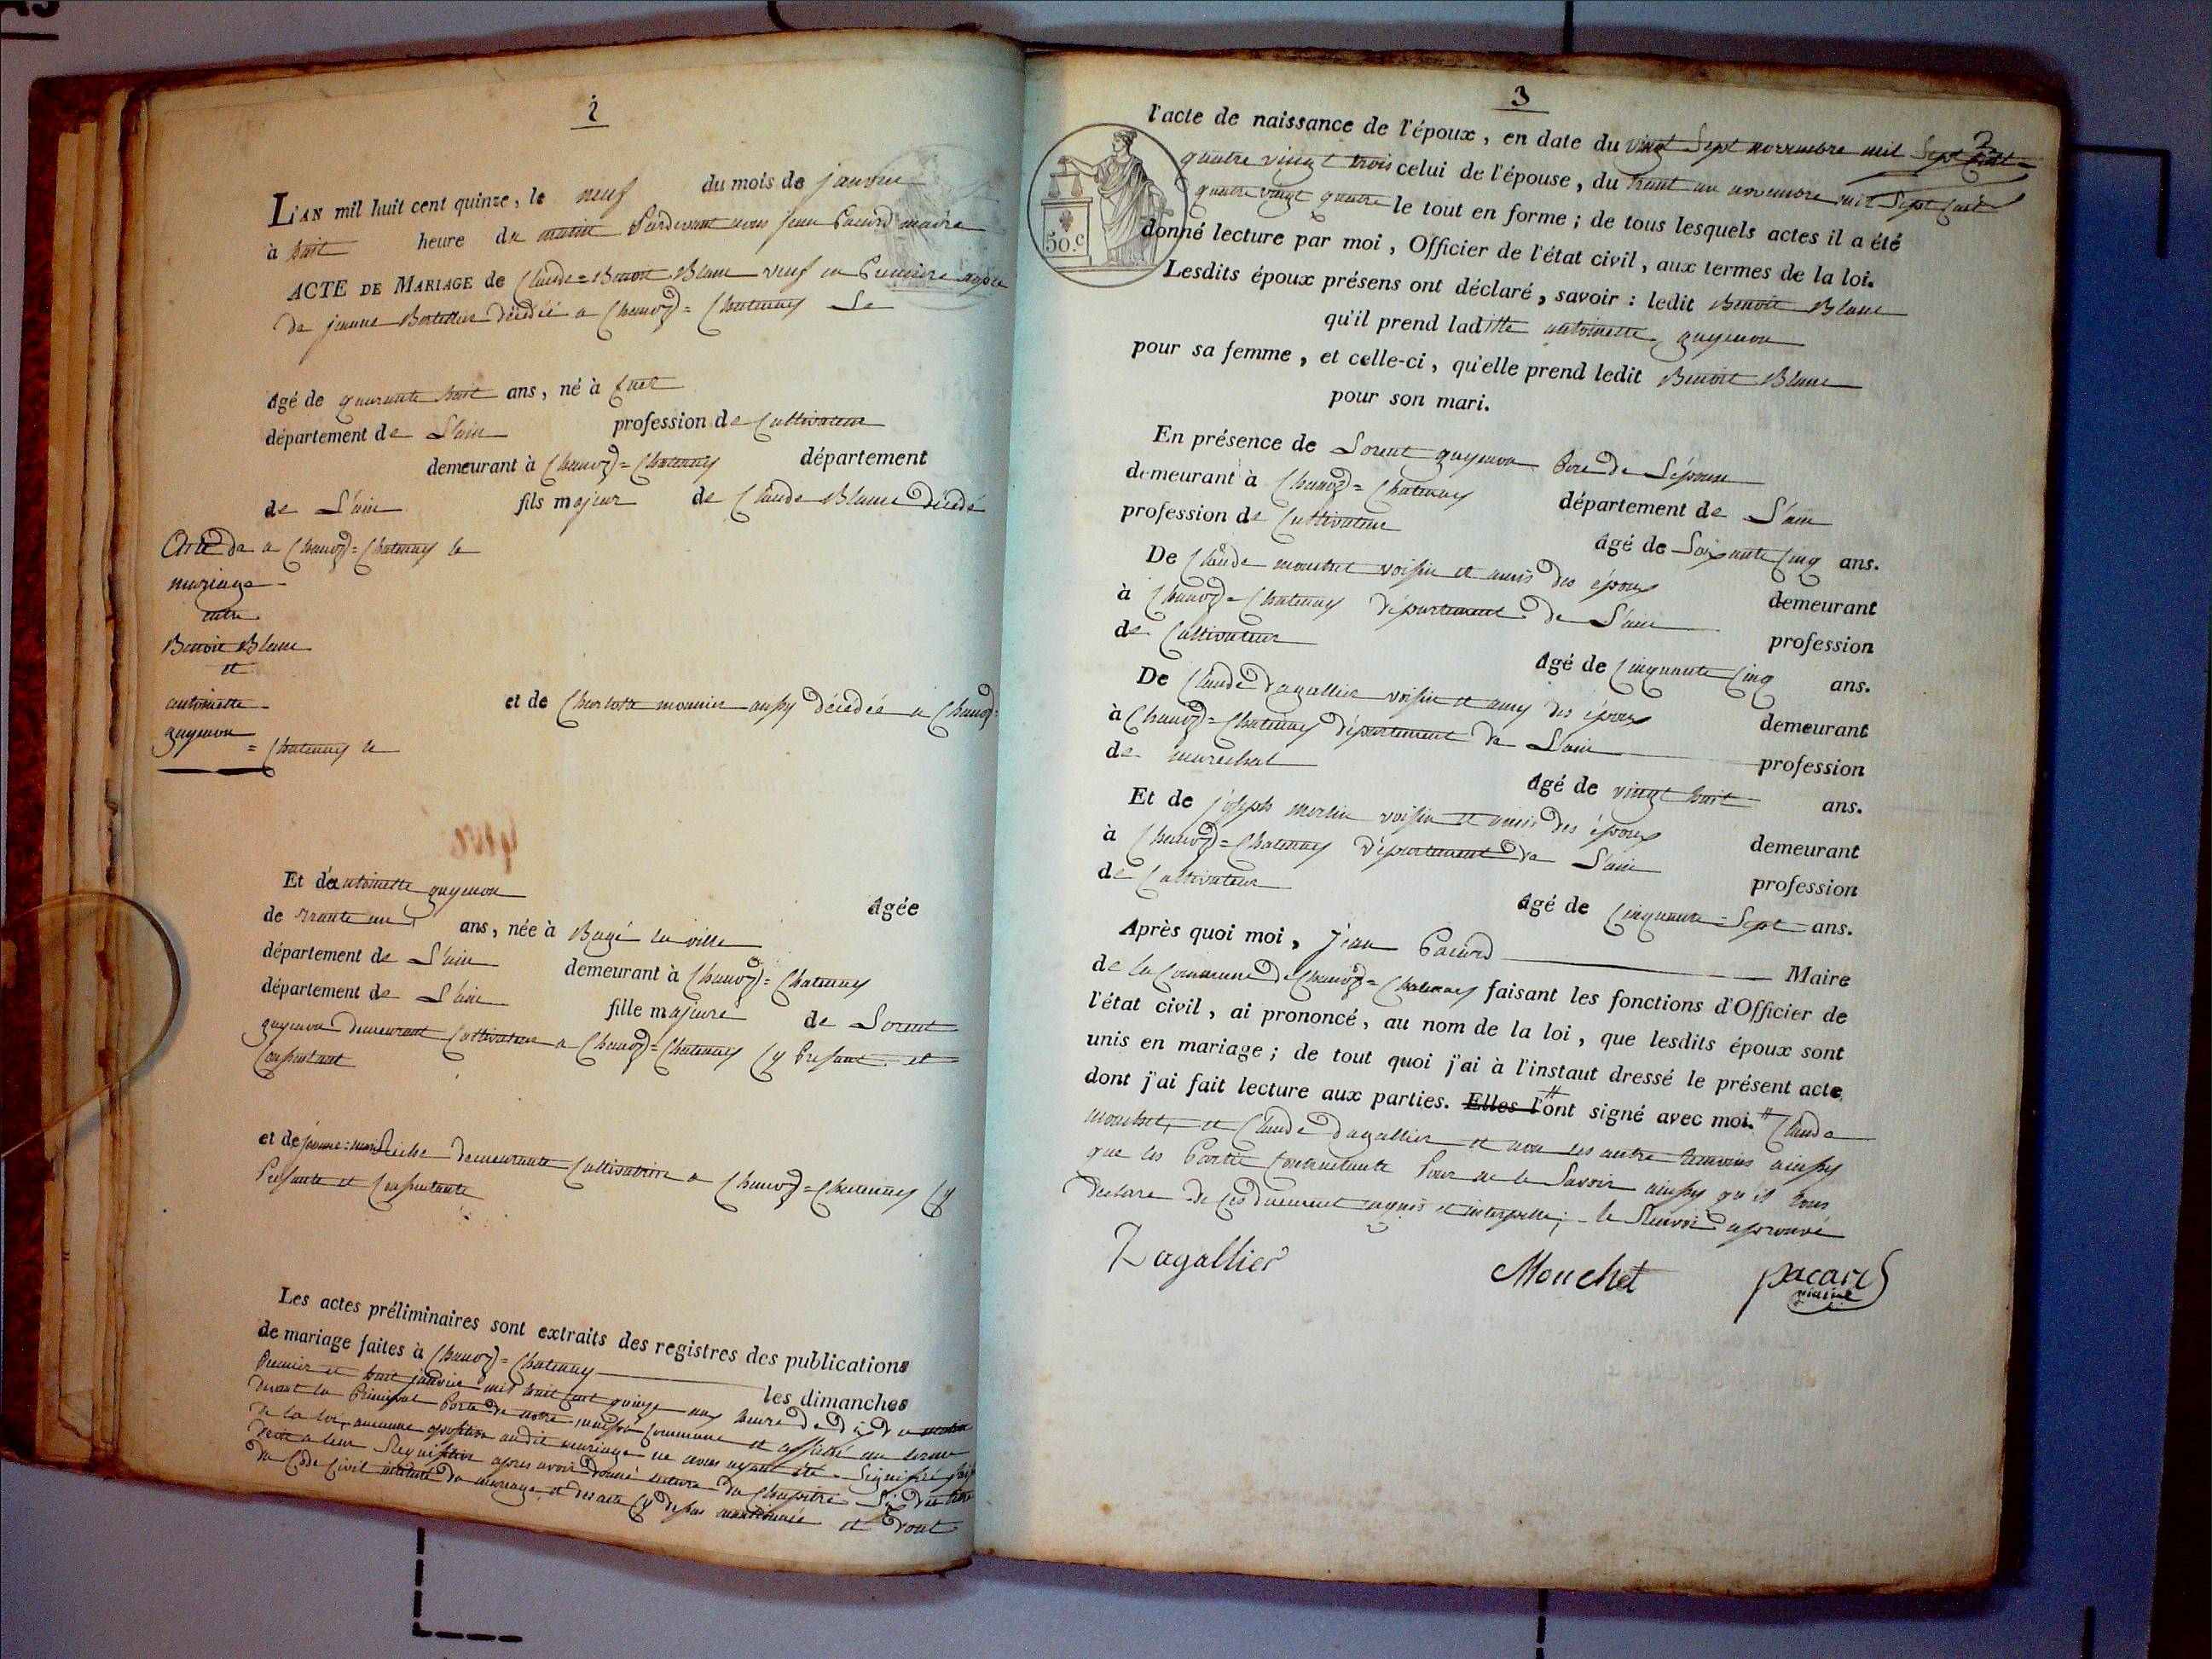 2
L'AN mil huit cent quinze, le neuf du mois de janvier
à huit heure du matin Pardevant nous jean Pacard maire
ACTE DE MARIAGE de Claude=Benoit Blanc veuf en Premiere
de jeanne Bertillier décédée a Chanoz=Chatenay Le
âgé de quarante huit ans, né à Cuet
département de L'ain profession de Cultivateur
demeurant à Chanoz=Chatenay département
de L'ain fils majeur de Claude Blanc décédé
a Chanoz=Chatenay le
Acte de
mariage
entre
Benoit Blanc
et
antoinette
guyenon
et de Charlotte monnier aussy décédée a Chanoz=
=Chatenay le
Et d'antoinette guyenon âgée
de trante un ans, née à Bagé la ville
département de L'ain demeurant à Chanoz=Chatenay
département de L'ain fille majeure de Lorent
guyenon demeurant Cultivateur a Chanoz=Chatenay Cy Presant et
Consentant
et de jeanne=marie demeurante Cultivatrice a Chanoz=Chatenay Cy
Presante et Consentante
Les actes préliminaires sont extraits des registres des publications
de mariage faites à Chanoz=Chatenay les dimanches
Premier et huit janvier mil huit Cent quinze aux heure de dix du matin
devant la Principal Porte de notre maison Commune et affiché au terme
de la loi, aucunne oposition audit mariage ne nous ayant été Signifié
a leur Requisition apres avoir donné lecture du Chapitre Six du titre
du Code Civil intitulé du mariage et des acte Cy dessus mentionnée et dont
3
2
l'acte de naissance de l'époux, en date du vingt Sept novembre mil Sept Cent
quatre vingt trois celui de l'épouse, du trant un novembre mil Sept Cent
quatre vingt quatre le tout en forme; de tous lesquels actes il a été
donné lecture par moi, Officier de l'état civil, aux termes de la loi.
50.c
Lesdits époux présens ont déclaré, savoir: ledit Benoit Blanc
qu'il prend laditte antoinette guyenon
pour sa femme, et celle-ci, qu'elle prend ledit Benoit Blanc
pour son mari.
En présence de Lorent guyenon Pere de L'épouse
demeurant à Chanoz=Chatenay département de L'ain
profession de Cultivateur âgé de Soixante Cinq ans.
De Claude mouchet voisin et amis des époux demeurant
à Chanoz=Chatenay département de L'ain profession
de Cultivateur âgé de Cinquante Cinq ans.
De Claude dagallier voisin et amy des époux demeurant
à Chanoz=Chatenay département de L'ain profession
de marechal âgé de vingt huit ans.
Et de joseph merlin voisin et amis des époux demeurant
à Chanoz=Chatenay département de L'ain profession
de Cultivateur âgé de Cinquante=Sept ans.
Après quoi moi, Jean Pacard Maire
de la Commune de Chanoz=Chatenay faisant les fonctions d'Officier de
l'état civil, ai prononcé, au nom de la loi, que lesdits époux sont
unis en mariage; de tout quoi j'ai à l'instaut dressé le présent acte
dont j'ai fait lecture aux parties. Elles l'ont signé avec moi. Claude
mouchet, et Claude dagallier et non les autre temoins ainssy
que les Partie Contractante Pour ne le Savoir ainssy qu'il nous
declare de Ces duement requis et interpellé; le Renvoi aprouvé
Dagallier Mouchet pacard
maire